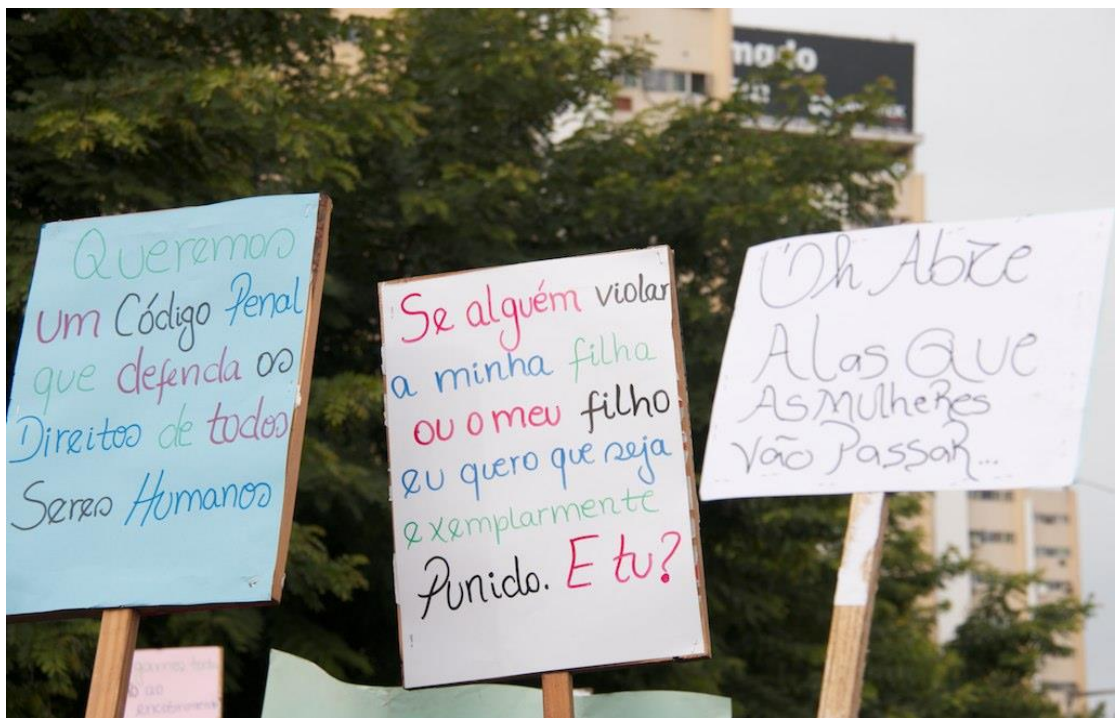 Queremos
um Código Penal
que defenda os
Direitos de todos
Seres Humanos
Se alguém violar
a minha filha
ou o meu filho
eu quero que seja
exemplarmente
Punido. E tu?
Oh Abre
Alas Que
As Mulheres
Vão Passar...